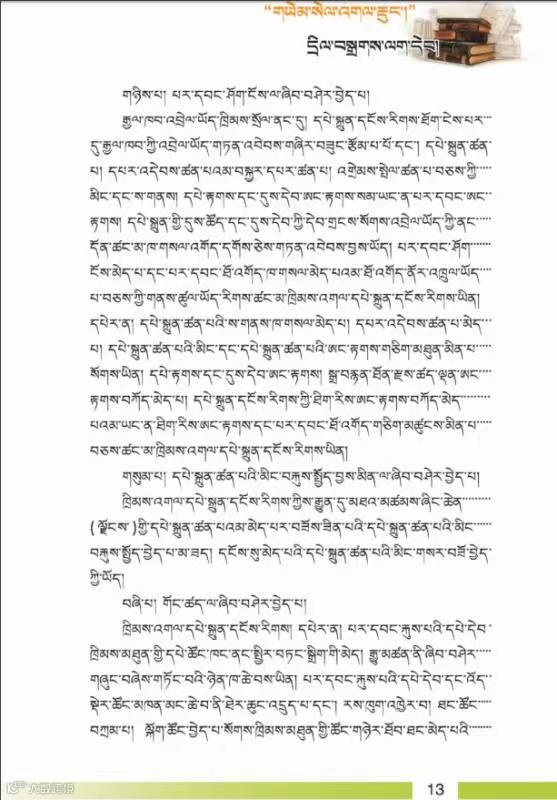 “གཡེམ་སེལ་འགལ་རྡུང་།”
དྲིལ་བསྒྲགས་ལག་དེབ།
གཉིས་པ། པར་དབང་ཤོག་ངོས་ལ་ཞིབ་བཤེར་བྱེད་པ།
རྒྱལ་ཁབ་འབྲེལ་ཡོད་ཁྲིམས་སྲོལ་ནང་དུ། དཔེ་སྐྲུན་དངོས་རིགས་ཐོག་ངེས་པར་
དུ་རྒྱལ་ཁབ་ཀྱི་འབྲེལ་ཡོད་གཏན་འབེབས་གཞིར་བཟུང་རྩོམ་པ་པོ་དང་། དཔེ་སྐྲུན་ཚན་
པ། དཔར་འདེབས་ཚན་པའམ་བསྐྱར་དཔར་ཚན་པ། འགྲེམས་སྤེལ་ཚན་པ་བཅས་ཀྱི་
མིང་དང་ས་གནས། དཔེ་རྟགས་དང་དུས་དེབ་ཨང་རྟགས་སམ་ཡང་ན་པར་དབང་ཨང་
རྟགས། དཔེ་སྐྲུན་གྱི་དུས་ཚོད་དང་དུས་དེབ་ཀྱི་དེབ་གྲངས་སོགས་འབྲེལ་ཡོད་ཀྱི་ནང་
དོན་ཚང་མ་ཁ་གསལ་འགོད་དགོས་ཅེས་གཏན་འབེབས་བྱས་ཡོད། པར་དབང་ཤོག་
ངོས་མེད་པ་དང་པར་དབང་ཐོ་འགོད་ཁ་གསལ་མེད་པའམ་ཐོ་འགོད་ནོར་འཁྲུལ་ཡོད་
པ་བཅས་ཀྱི་གནས་ཚུལ་ཡོད་རིགས་ཚང་མ་ཁྲིམས་འགལ་དཔེ་སྐྲུན་དངོས་རིགས་ཡིན།
དཔེར་ན། དཔེ་སྐྲུན་ཚན་པའི་ས་གནས་ཁ་གསལ་མེད་པ། དཔར་འདེབས་ཚན་པ་མེད་
པ། དཔེ་སྐྲུན་ཚན་པའི་མིང་དང་དཔེ་སྐྲུན་ཚན་པའི་ཨང་རྟགས་གཅིག་མཐུན་མིན་པ་
སོགས་ཡིན། དཔེ་རྟགས་དང་དུས་དེབ་ཨང་རྟགས། སྒྲ་བརྙན་ཐོན་རྫས་ཚད་ལྡན་ཨང་
རྟགས་བཀོད་མེད་པ། དཔེ་སྐྲུན་དངོས་རིགས་ཀྱི་ཐིག་རིས་ཨང་རྟགས་བཀོད་མེད་
པའམ་ཡང་ན་ཐིག་རིས་ཨང་རྟགས་དང་པར་དབང་ཐོ་འགོད་གཅིག་མཚུངས་མིན་པ་
བཅས་ཚང་མ་ཁྲིམས་འགལ་དཔེ་སྐྲུན་དངོས་རིགས་ཡིན།
གསུམ་པ། དཔེ་སྐྲུན་ཚན་པའི་མིང་བརྐུས་སྤྱོད་བྱས་མིན་ལ་ཞིབ་བཤེར་བྱེད་པ།
ཁྲིམས་འགལ་དཔེ་སྐྲུན་དངོས་རིགས་ཀྱིས་རྒྱུན་དུ་མཐའ་མཚམས་ཞིང་ཆེན་
(ལྗོངས་)གྱི་དཔེ་སྐྲུན་ཚན་པའམ་མེད་པར་བཟོས་ཟིན་པའི་དཔེ་སྐྲུན་ཚན་པའི་མིང་
བརྐུས་སྤྱོད་བྱེད་པ་མ་ཟད། དངོས་སུ་མེད་པའི་དཔེ་སྐྲུན་ཚན་པའི་མིང་གསར་བཟོ་བྱེད་
ཀྱི་ཡོད།
བཞི་པ། གོང་ཚད་ལ་ཞིབ་བཤེར་བྱེད་པ།
ཁྲིམས་འགལ་དཔེ་སྐྲུན་དངོས་རིགས། དཔེར་ན། པར་དབང་རྐུས་པའི་དཔེ་དེབ་
ཁྲིམས་མཐུན་གྱི་དཔེ་ཚོང་ཁང་ནང་སྤྱིར་བཏང་སྒྲིག་གི་མེད། རྒྱུ་མཚན་ནི་ཞིབ་བཤེར་
གཞུང་བཞེས་གཏོང་བའི་ཉེན་ཁ་ཆེ་བས་ཡིན། པར་དབང་རྐུས་པའི་དཔེ་དེབ་དང་འོད་
སྡེར་ཚོང་མཁན་མང་ཆེ་བ་ནི་ཐེར་ཆུང་འདྲུད་པ་དང་། རས་ཁུག་འཁྱེར་བ། ཐང་ཚོང་
བཀྲམ་པ། ལྐོག་ཚོང་བྱེད་པ་སོགས་ཁྲིམས་མཐུན་གྱི་ཚོང་གཉེར་ཐོབ་ཐང་མེད་པའི་
13